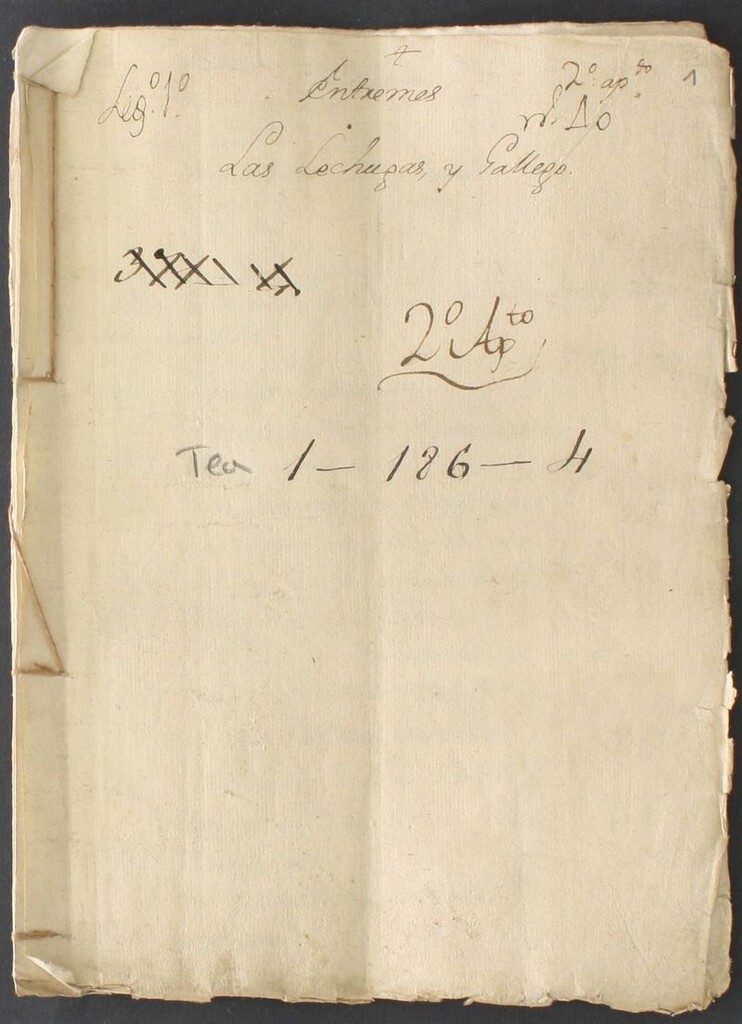 Leg.º 1º
Entremes
2º ap.to
1
Las Lechugas, y Gallego.
2º Apto
Tea 1 - 186 - 4